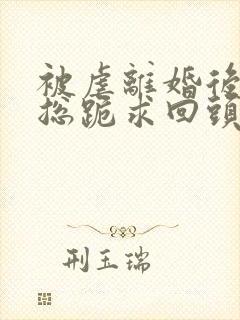 被虐離婚後
总跪求回頭
刑玉瑞